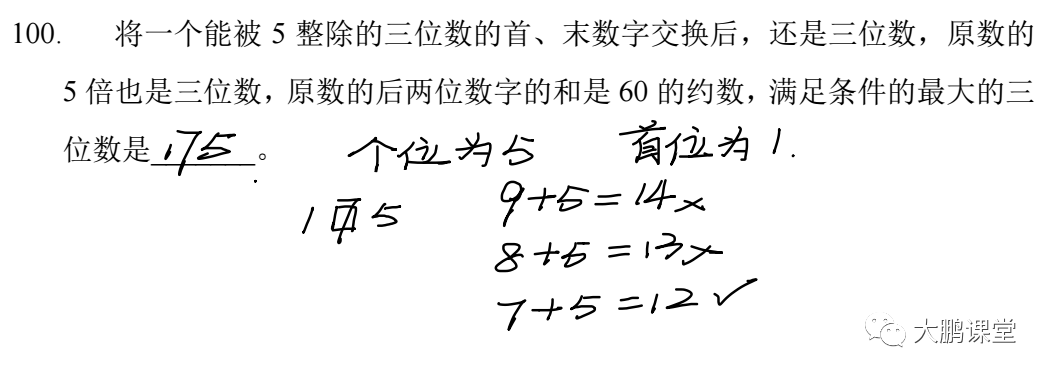 100. 将一个能被 5 整除的三位数的首、末数字交换后，还是三位数，原数的
5 倍也是三位数，原数的后两位数字的和是 60 的约数，满足条件的最大的三
位数是 175 。 个位为5 首位为1.
1 7 5 9+5=14×
8+5=13×
7+5=12✓
大鹏课堂